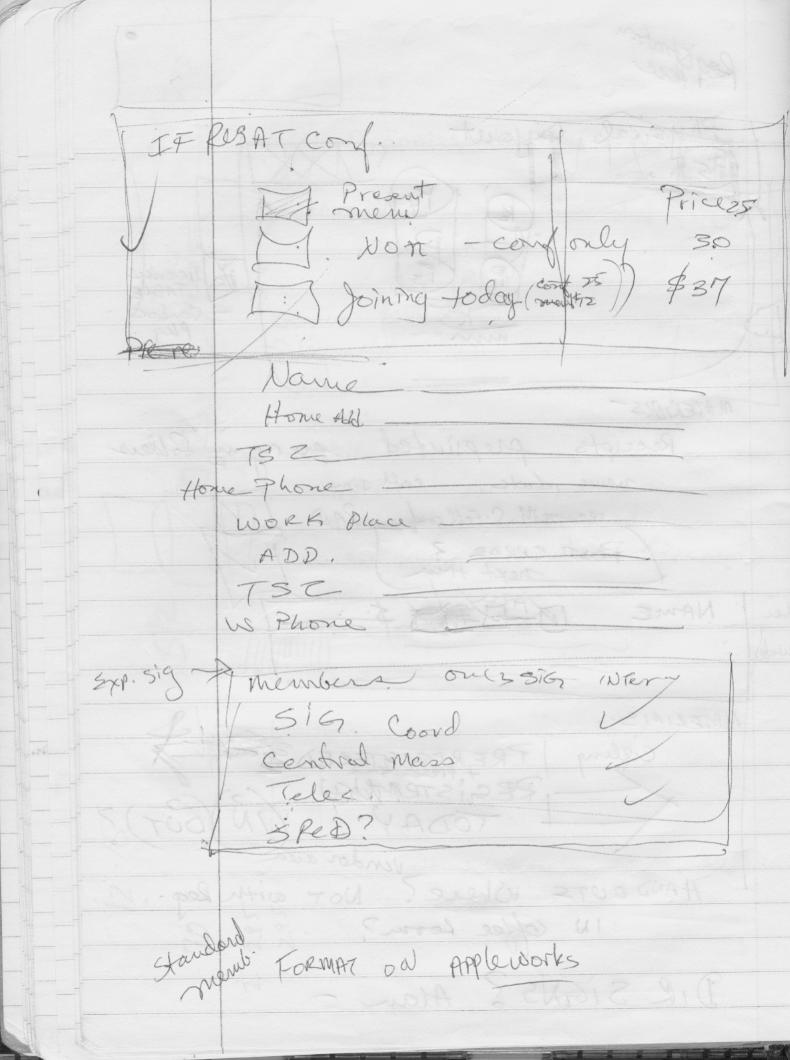 IF REG AT Conf..
Present
mem Price 25
NON - conf only 30
Joining today (conf 25 $37
mem 12)
Name
Home Add.
TSZ
Home Phone
WORK Place
ADD.
TSZ
W Phone
Exp. Sig → members only SIG INter
SIG. Coord
Central Mass
Telec.
SPED?
Standard
memb. FORMAT ON Appleworks